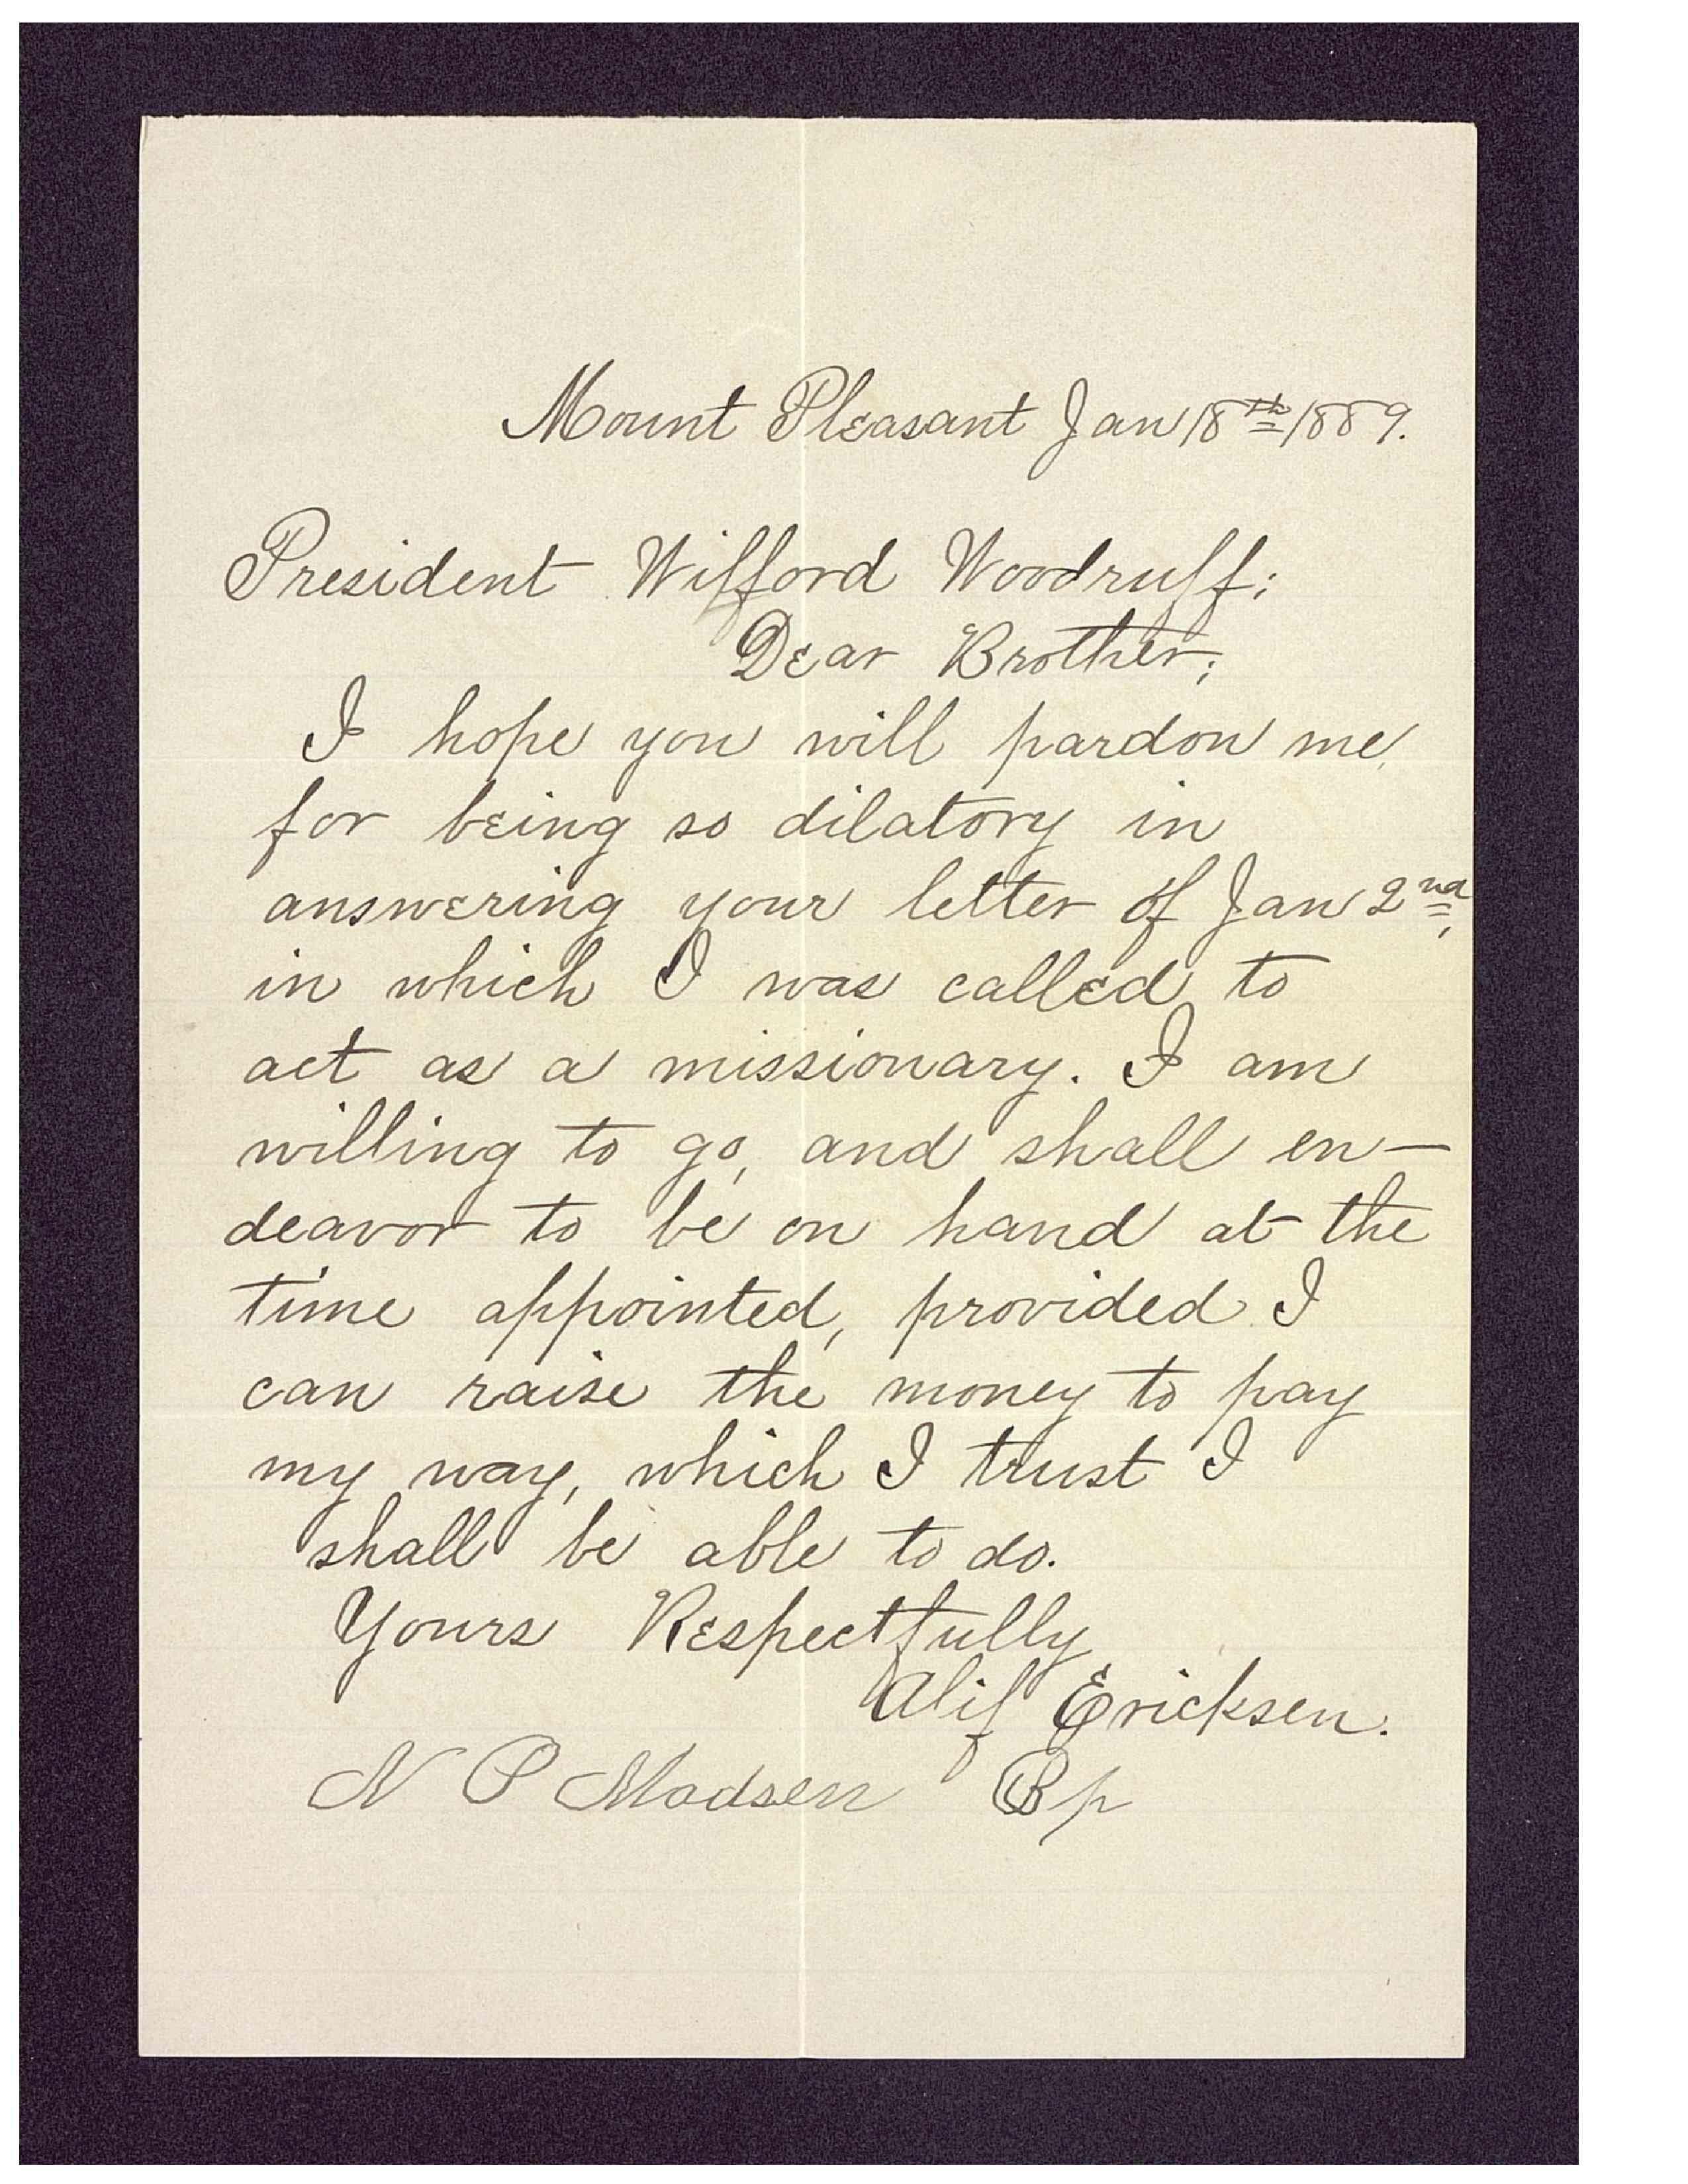 Mount Pleasant Jan 18th 1889.
President Wifford Woodruff;
Dear Brother;
I hope you will pardon me
for being so dilatory in
answering your letter of Jan 2nd,
in which I was called to
act as a missionary. I am
willing to go, and shall en-
deavor to be on hand at the
time appointed, provided I
can raise the money to pay
my way, which I trust I
shall be able to do.
Yours Respectfully
Alif Ericksen.
N P Madsen Bp